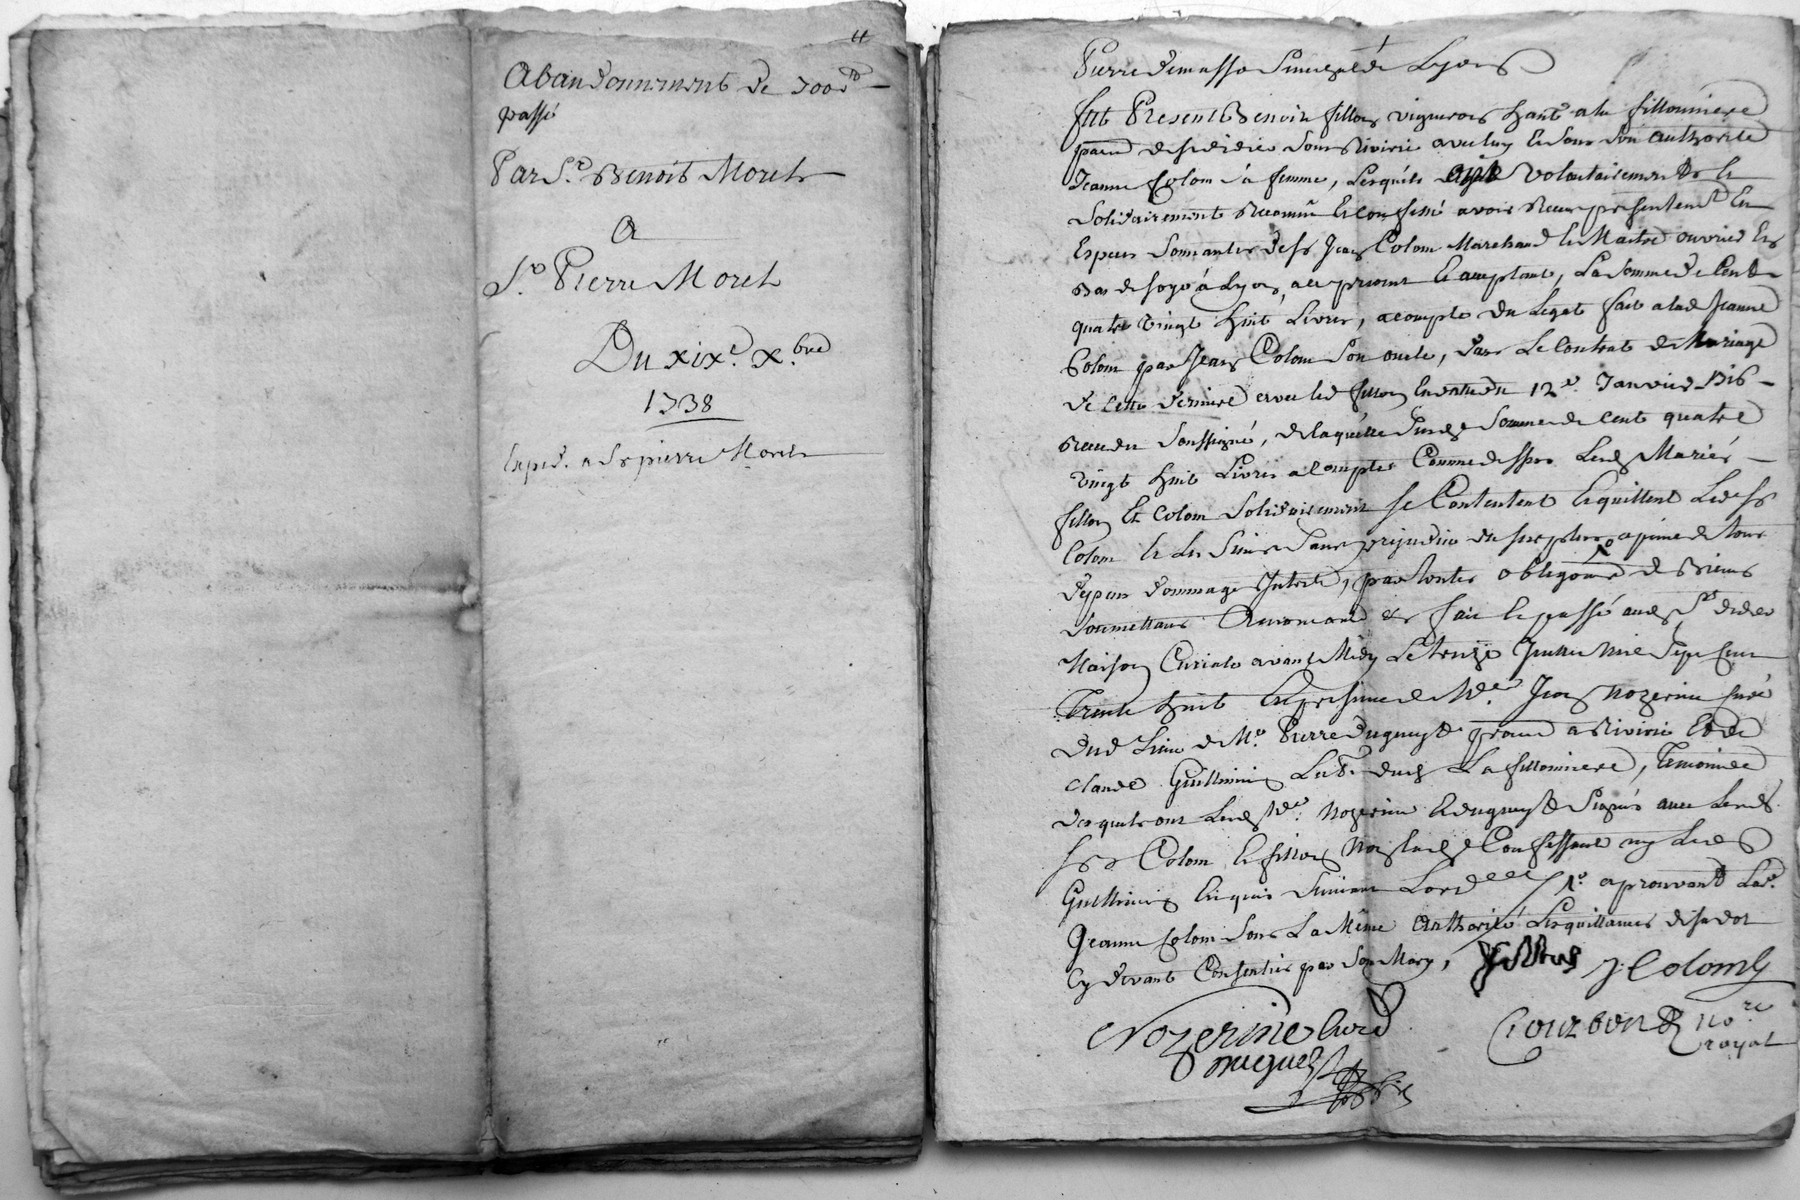 Abandonnement de 700#
passé
Par Sr. Benoit Morel
A
Sr. Pierre Morel
Du xixe. Xbre
1738
Exped. a Sr pierre Morel
Pierre Demasso Senechal de Lyon
fut Present Benoit fillon vigneron hant a la fillonniere
parr de st didier sous Rivirie avec luy et sous son authorité
Jeanne Colom sa femme, lesquels ont volontairement et
solidairement reconnu et confessé avoir receu presentemt en
especes sonnantes de sr Jean Colom Marchand et Maitre ouvrier en
bas de soye a Lyon, a ce present et acceptant, la somme de cent
quatre vingt huit livres, acompte du legat fait a lad Jeanne
Colom par Jean Colom son oncle, dans le contrat de Mariage
de cette derniere avec led fillon en datte du 12e. Janvier 1716
receu du soussigné, de laquelle susd somme de cent quatre
vingt huit livres a compte comme dessus lesd Mariés
fillon et Colom solidairement se contentent et quittent led sr
Colom et les siens sans prejudice du surplus a peine de tous
depens dommages interets, par toutes obligeons de biens
soumettans renonceant &c fait et passé aud st didier
Maison Curiale avant Midy le treize Juillet mil sept cent
trente huit en presence de Mre. Jean Nozerine curé
dud lieu de Me. Pierre Duguey pr a Rivirie et de
claude Guillermin dud la fillonniere, temoins
desquels ont lesd Mre. Nozerine et Duguey signés avec lesd
srs Colom et fillon non lad Confessant ny led
Guillermin enquis suivant l'ord 1o aprouvant lad.
Jeanne Colom sous la même authorité les quittances de sa dot
cy devant consenties par son Mary,
fillon J Colomb
Nozerine Curé
Duguey
Courbon Nore
royal